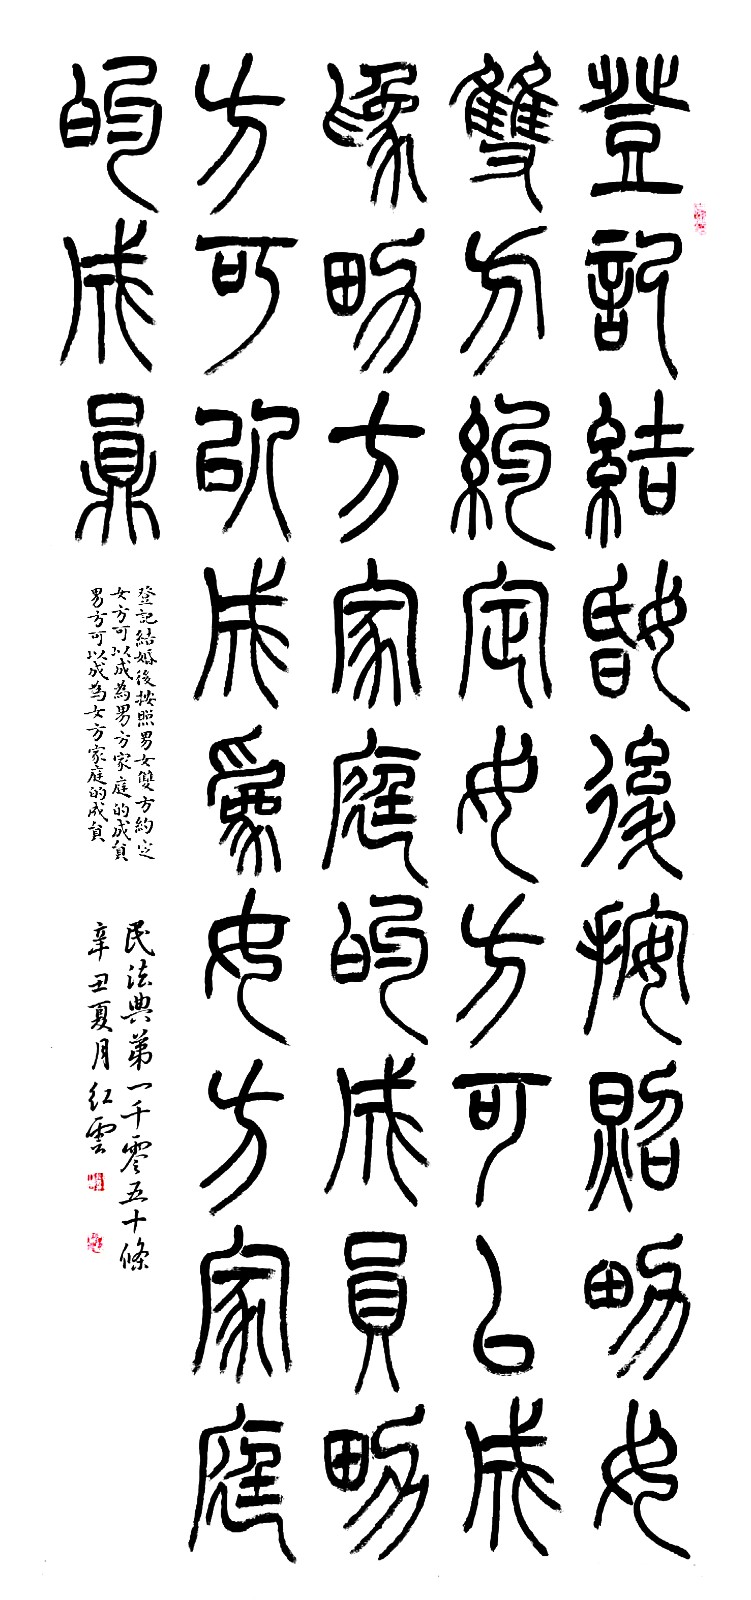 登記結婚後按照男女
雙方約定女方可以成
為男方家庭的成員男
方可以成為女方家庭
的成員
登記結婚後按照男女雙方約定
女方可以成為男方家庭的成員
男方可以成為女方家庭的成員
民法典第一千零五十條
辛丑夏月紅雲